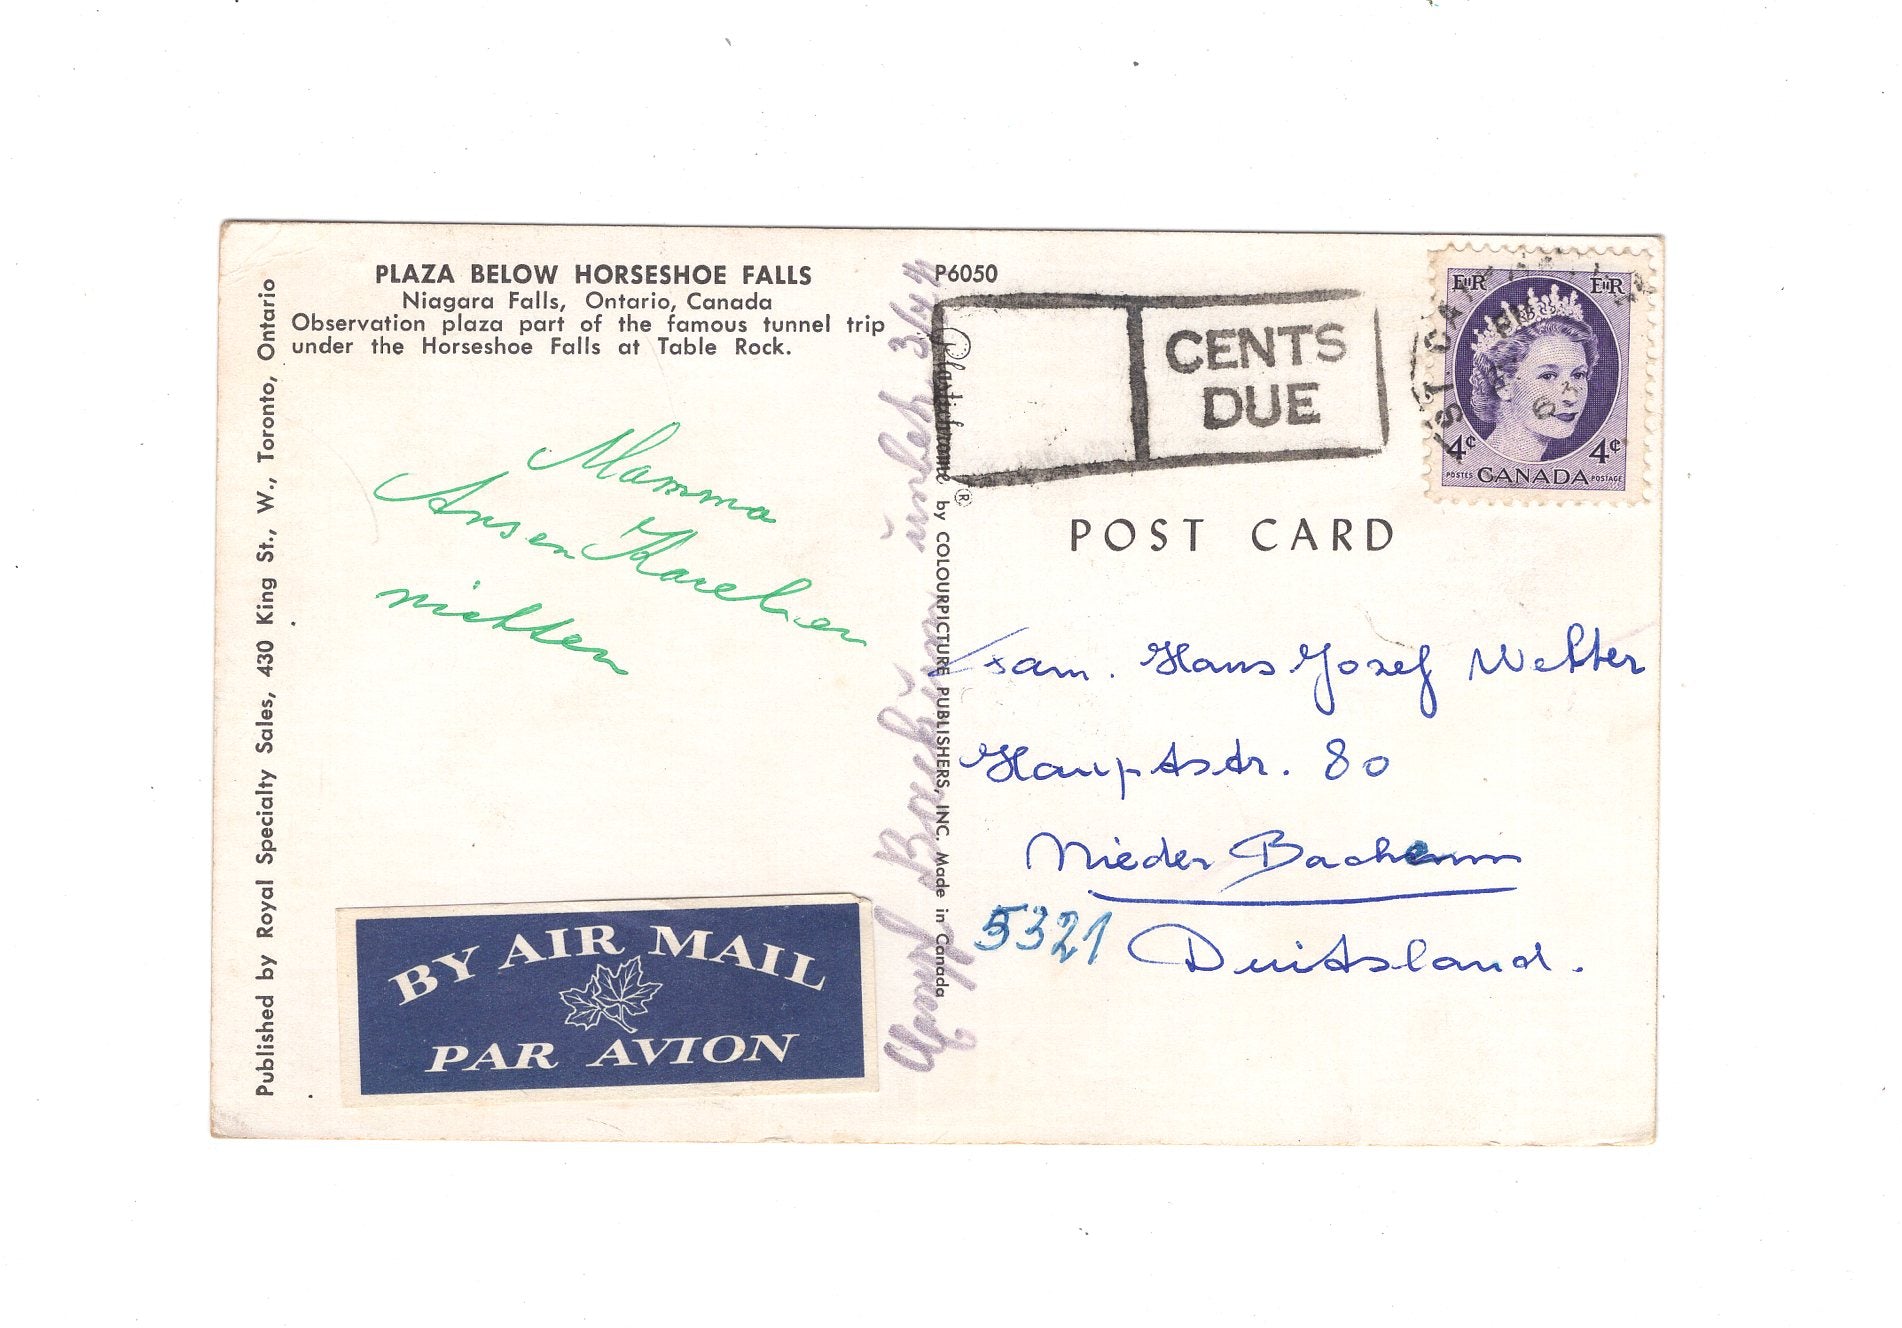 PLAZA BELOW HORSESHOE FALLS
Niagara Falls, Ontario, Canada
Observation plaza part of the famous tunnel trip
under the Horseshoe Falls at Table Rock.
Published by Royal Specialty Sales, 430 King St., W., Toronto, Ontario
Mamma
BY AIR MAIL
PAR AVION
Plastichrome® by COLOURPICTURE PUBLISHERS, INC. Made in Canada
P6050
CENTS
DUE
EIIR EIIR
4¢ 4¢
POSTES CANADA POSTAGE
POST CARD
Fam. Hans Josef
Hauptstr. 80
Nieder
5321 Duitsland.